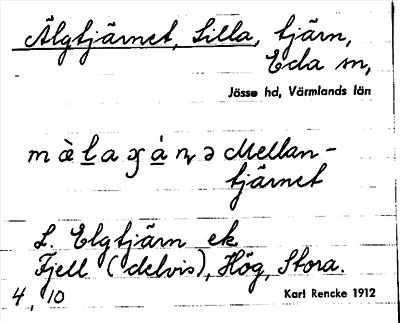 Älgtjärnet, Lilla, tjärn,
Eda sn,
Jösse hd, Värmlands län
Mellan-
tjärnet
L. Elgtjärn ek
Fjell (delvis), Hög, Stora.
4, 10
Karl Rencke 1912